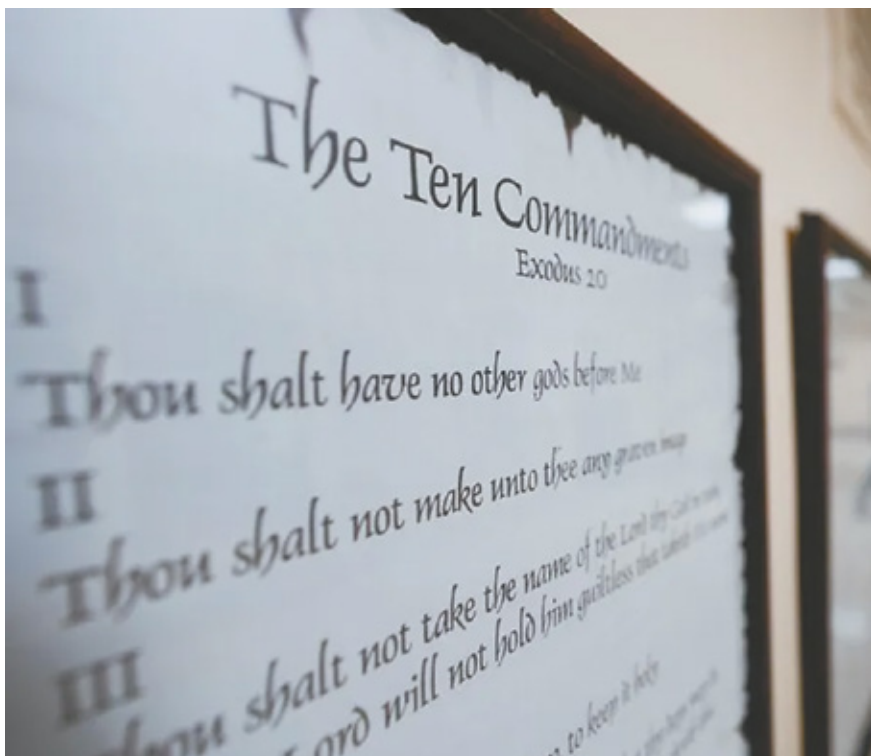 The Ten Commandments
Exodus 20
I
Thou shalt have no other gods before Me
II
Thou shalt not make unto thee any graven imag
III
Thou shalt not take the name of the Lord thy God in vain,
Lord will not hold him guiltless that taketh His name
to keep it holy